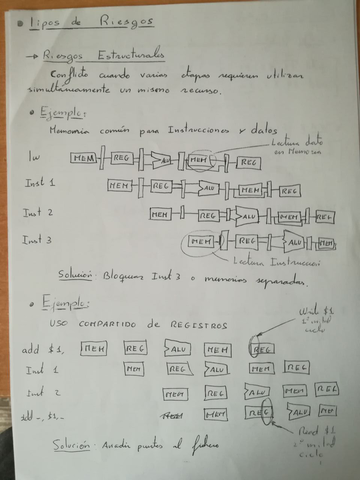 • Tipos de Riesgos
→ Riesgos Estructurales
Conflicto cuando varias etapas requieren utilizar
simultaneamente un mismo recurso.
• Ejemplo:
Memoria común para Instrucciones y datos
Lectura dato
en Memoria
lw MEM REG ALU MEM REG
Inst 1 MEM REG ALU MEM REG
Inst 2 MEM REG ALU MEM REG
Inst 3 MEM REG ALU MEM
Lectura Instruccion
Solución: Bloquear Inst 3 o memorias separadas.
• Ejemplo:
USO COMPARTIDO de REGISTROS
Write $1
1ª mitad
ciclo
add $1, MEM REG ALU MEM REG
Inst 1 MEM REG ALU MEM REG
Inst 2 MEM REG ALU MEM REG
add -, $1, - MEM MEM REG ALU ME
Read $1
2ª mitad
ciclo
Solución: Añadir puertos al